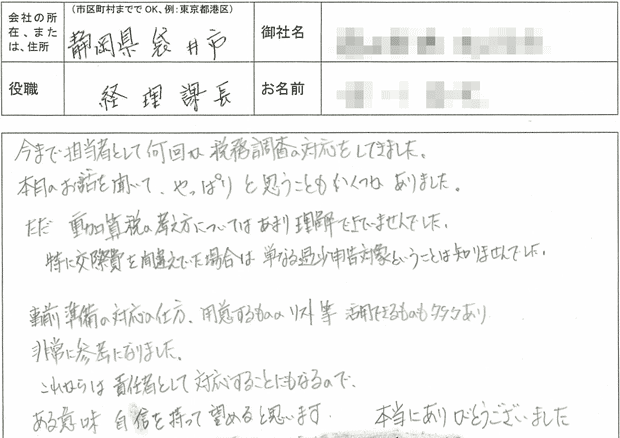 会社の所在、または、住所
(市区町村まででOK、例:東京都港区)
静岡県袋井市
御社名
役職
経理課長
お名前
今まで担当者として何回か税務調査の対応をしてきました。
本日のお話を聞いて、やっぱりと思うこともいくつかありました。
ただ 重加算税の考え方についてはあまり理解できていませんでした。
特に交際費を間違えていた場合は単なる過少申告対象ということは知りませんでした。
事前準備の対応の仕方、用意するもののリスト等 活用できるものも多々あり
非常に参考になりました。
これからは責任者として対応することにもなるので、
ある意味 自信を持って望めると思います。 本当にありがとうございました